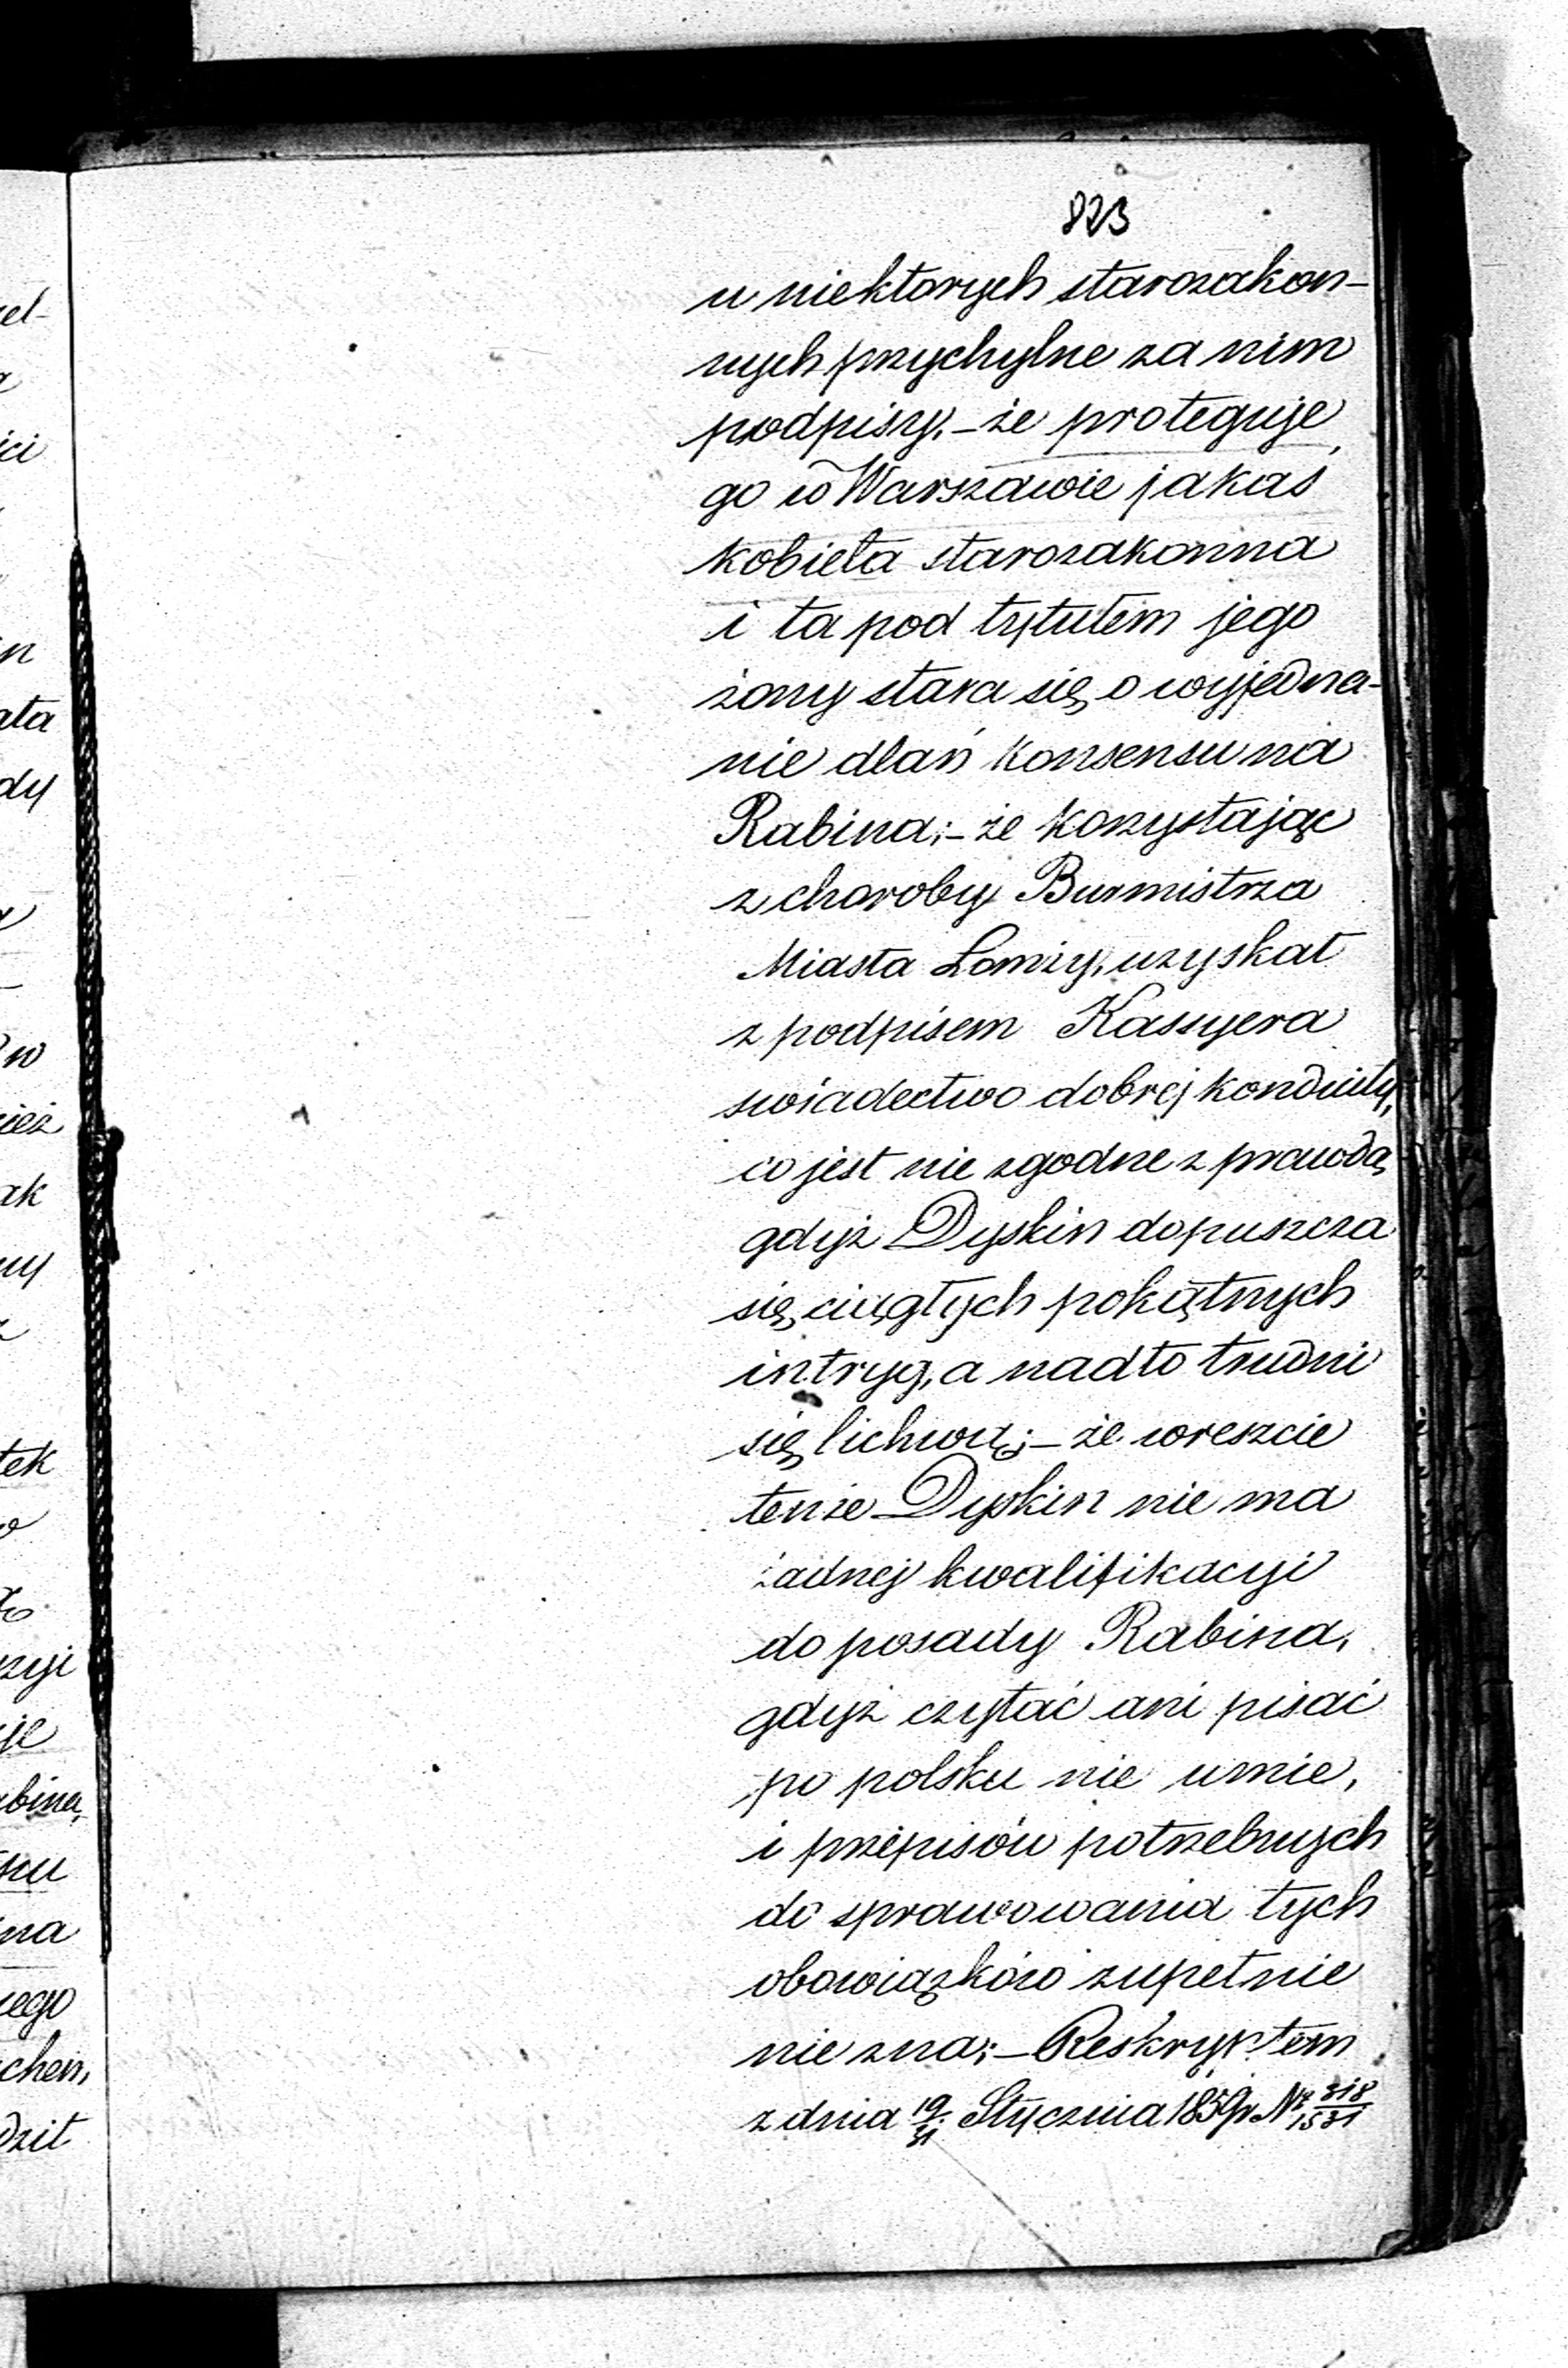 823
u niektorych starozakon-
nych przychylne za nim
podpisy, - że proteguje
go w Warszawie jakaś
kobieta starozakonna
i ta pod tytułem jego
żony stara się o wyjedna-
nie dlań konsensu na
Rabina; - że korzystając
z choroby Burmistrza
Miasta Łomży, uzyskał
z podpisem Kassyera
swiadectwo dobrej konduity,
co jest nie zgodne z prawdą
gdyż Dyskin dopuszcza
się ciągłych pokątnych
intryg, a nadto trudni
się lichwą; - że wreszcie
tenże Dyskin nie ma
żadnej kwalifikacyi
do posady Rabina,
gdyż czytać ani pisać
po polsku nie umie,
i przepisów potrzebnych
do sprawowania tych
obowiązków zupełnie
nie zna; - Reskryptem
z dnia 19/31 Stycznia 1859 r. Nr 818/1531
el-
ici
n
ata
dy
w
ież
ak
ny
tek
zyi
je
bina
na
iego
chen,
dził